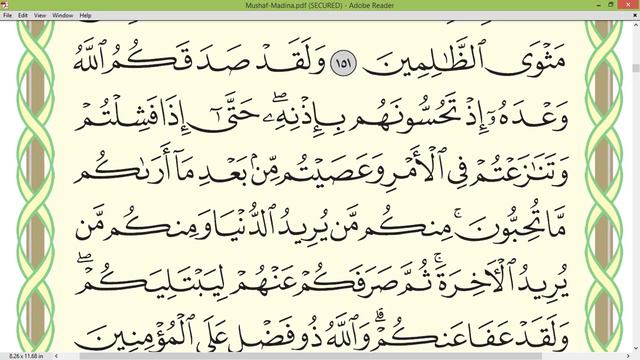 Mushaf-Madina.pdf (SECURED) - Adobe Reader
File Edit View Window Help
مَثْوَى ٱلظَّٰلِمِينَ ١٥١ وَلَقَدْ صَدَقَكُمُ ٱللَّهُ
وَعْدَهُۥٓ إِذْ تَحُسُّونَهُم بِإِذْنِهِۦۖ حَتَّىٰٓ إِذَا فَشِلْتُمْ
وَتَنَٰزَعْتُمْ فِى ٱلْأَمْرِ وَعَصَيْتُم مِّنۢ بَعْدِ مَآ أَرَىٰكُم
مَّا تُحِبُّونَۚ مِنكُم مَّن يُرِيدُ ٱلدُّنْيَا وَمِنكُم مَّن
يُرِيدُ ٱلْأَخِرَةَۚ ثُمَّ صَرَفَكُمْ عَنْهُمْ لِيَبْتَلِيَكُمْۖ
وَلَقَدْ عَفَا عَنكُمْۗ وَٱللَّهُ ذُو فَضْلٍ عَلَى ٱلْمُؤْمِنِينَ
8.26 x 11.68 in